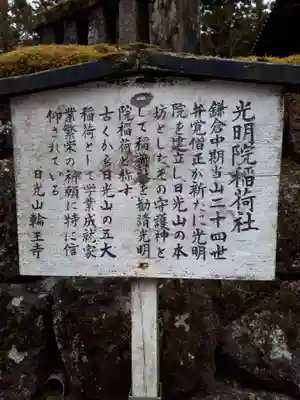 光明院稲荷社
鎌倉中期当山二十四世
弁覚僧正が新たに光明
院を建立し日光山の本
坊としたその守護神と
して稲荷を勧請光明
院稲荷と称す
古くから日光山の五大
稲荷として学業成就家
業繁栄の祈願に特に信
仰されている
日光山輪王寺